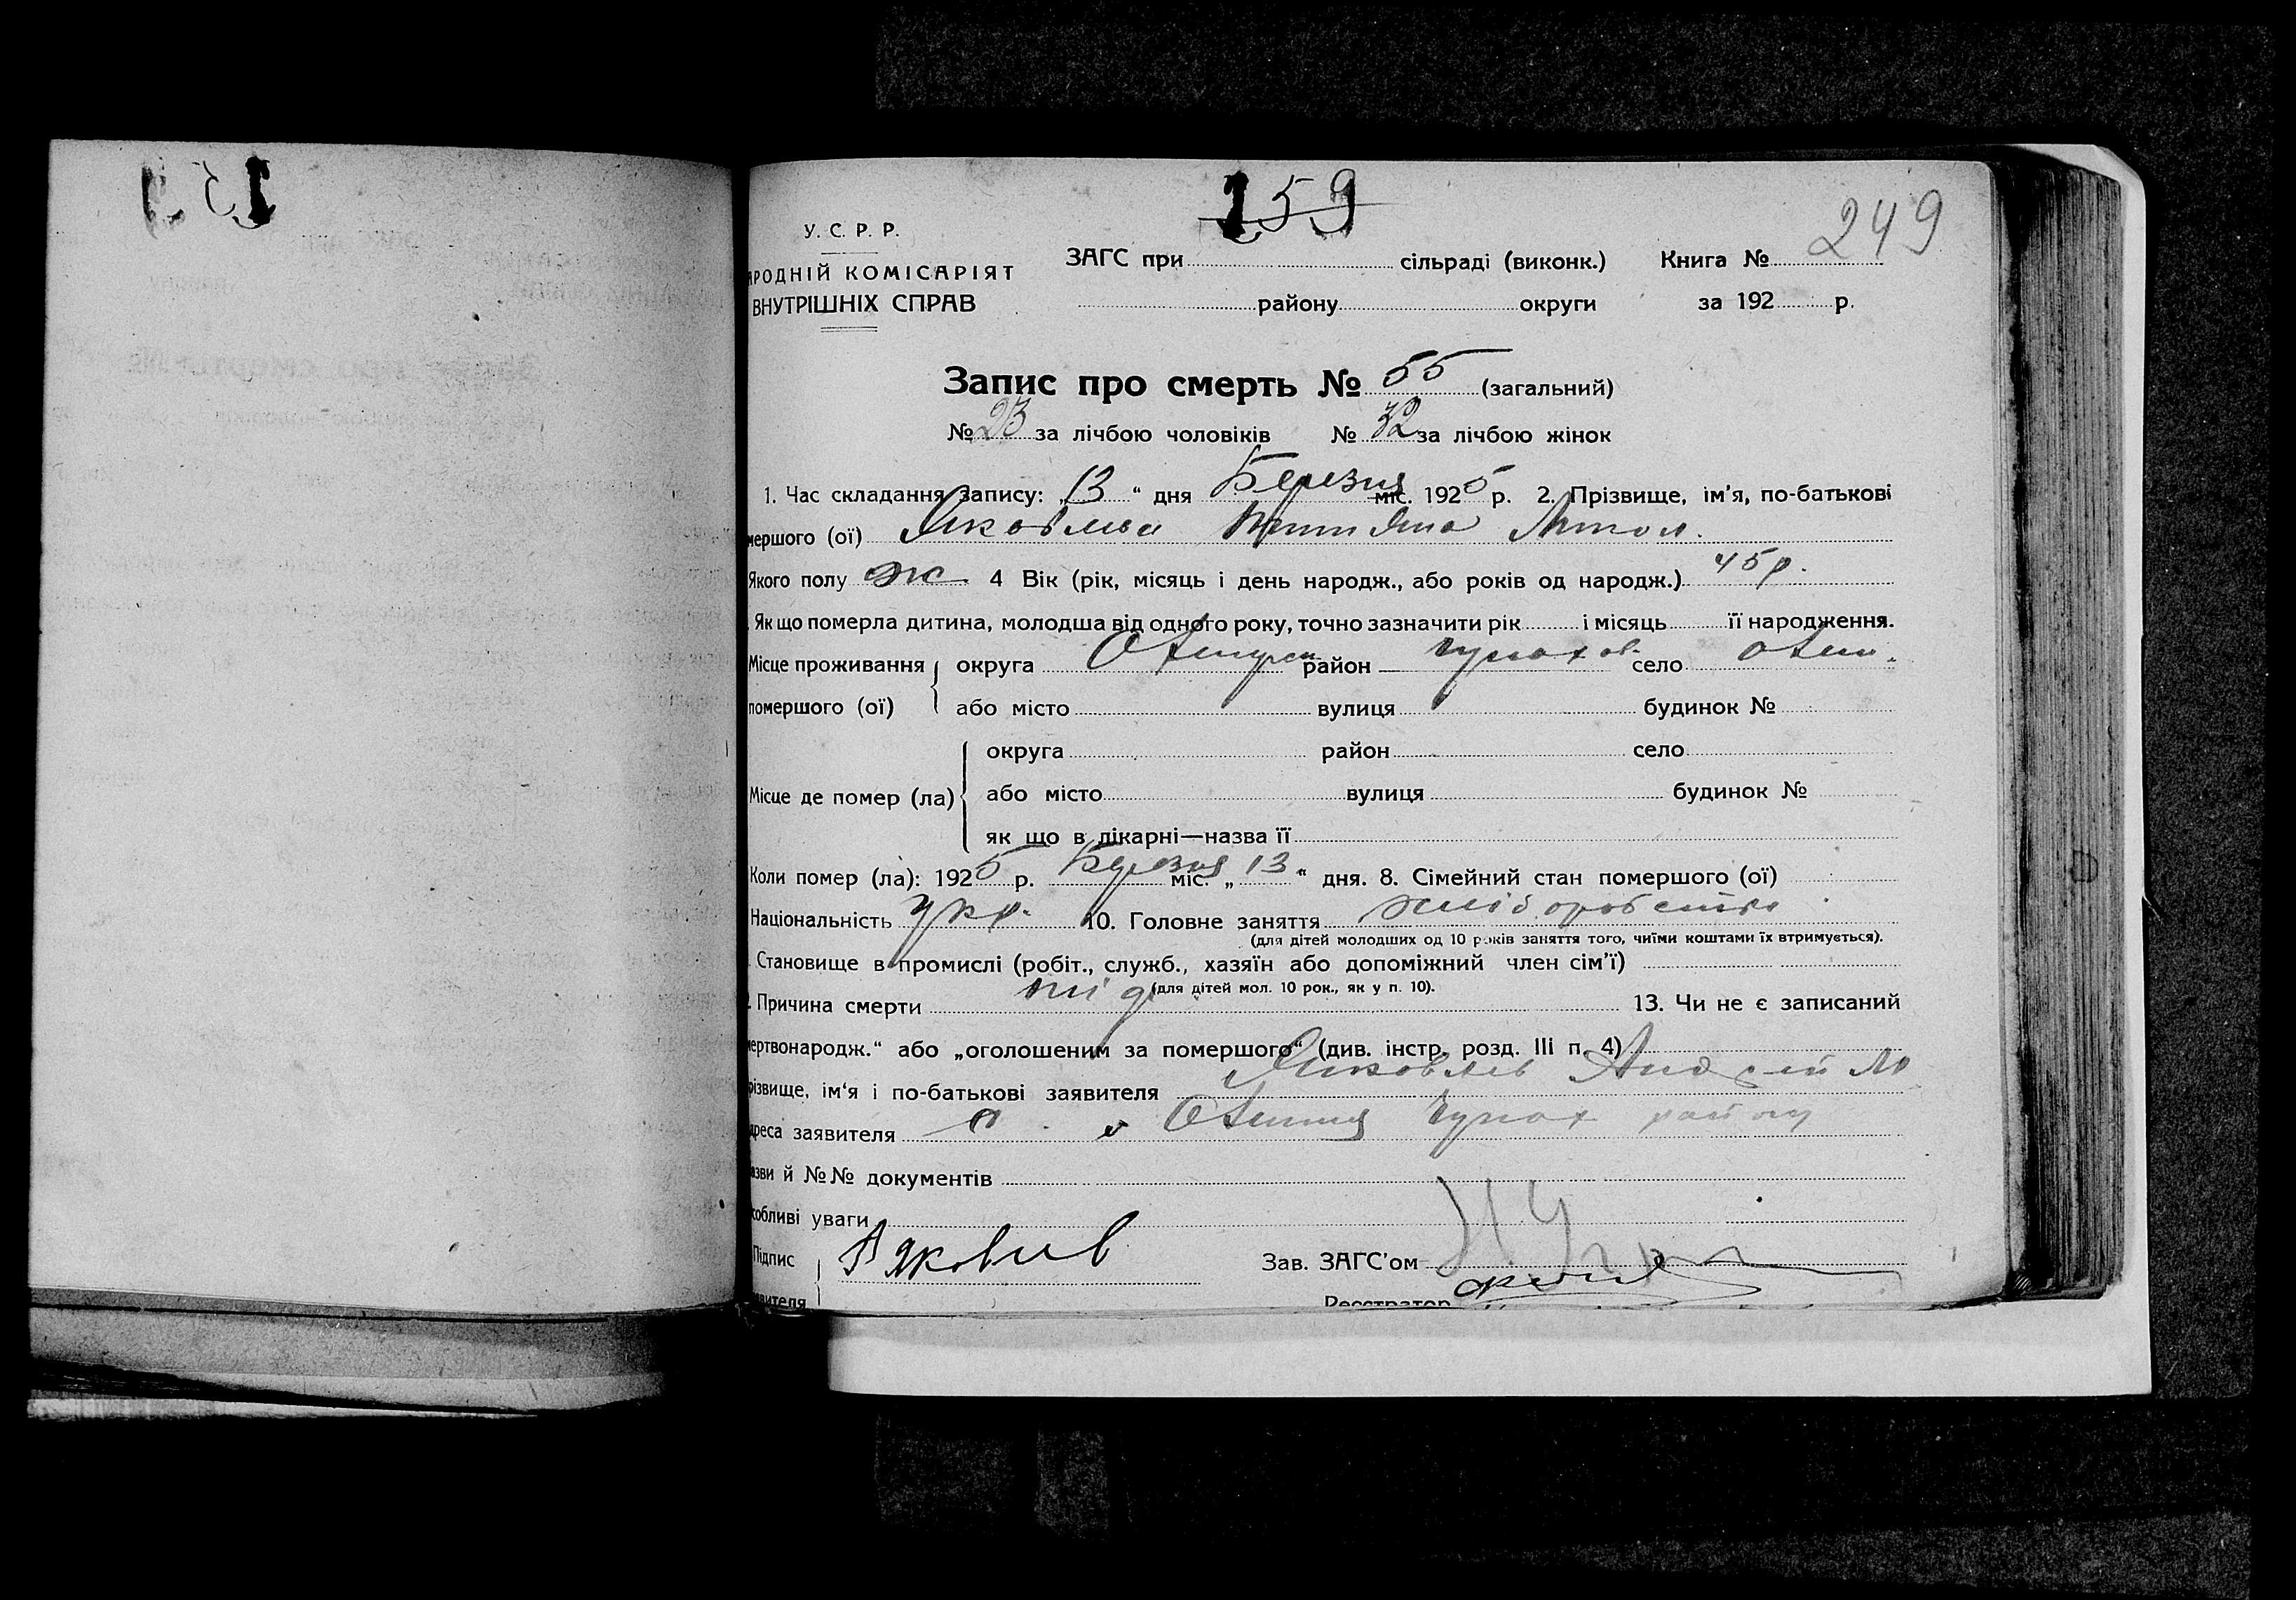 159
249
У. С. Р. Р.
АРОДНІЙ КОМІСАРІЯТ
ВНУТРІШНІХ СПРАВ
ЗАГС при сільраді (виконк.) Книга №
району округи за 192 р.
Запис про смерть № 55 (загальний)
№ 23 за лічбою чоловіків № 32 за лічбою жінок
1. Час складання запису: „13“ дня Березня міс. 1925 р. 2. Прізвище, ім’я, по-батькові
мершого (ої) Яковлева
Якого полу ж 4 Вік (рік, місяць і день народж., або років од народж.) 45 р.
Як що померла дитина, молодша від одного року, точно зазначити рік і місяць її народження.
Місце проживання округа район село
помершого (ої) або місто вулиця будинок №
округа район село
Місце де помер (ла) або місто вулиця будинок №
як що в лікарні—назва її
Коли помер (ла): 1925 р. Березня міс. „13“ дня. 8. Сімейний стан помершого (ої)
Національність укр. 10. Головне заняття хліборобство
(для дітей молодших од 10 років заняття того, чиїми коштами їх втримується).
Становище в промислі (робіт., служб., хазяїн або допоміжний член сім’ї)
(для дітей мол. 10 рок., як у п. 10).
Причина смерти 13. Чи не є записаний
мертвонародж.“ або „оголошеним за помершого“ (див. інстр. розд. III п. 4)
різвище, ім‘я і по-батькові заявителя Яковлев Андрей
дреса заявителя району
азви й №№ документів
собливі уваги
Підпис А Яковлев Зав. ЗАГС’ом
явителя Реєстратор